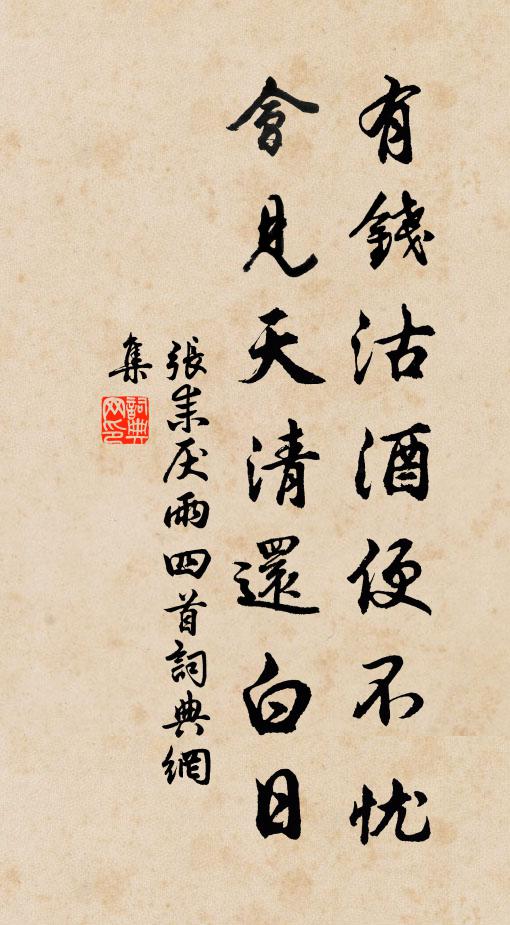 有錢沽酒便不忧
會見天清還白日
張耒厌雨四首詞典網
集
詞典
网印